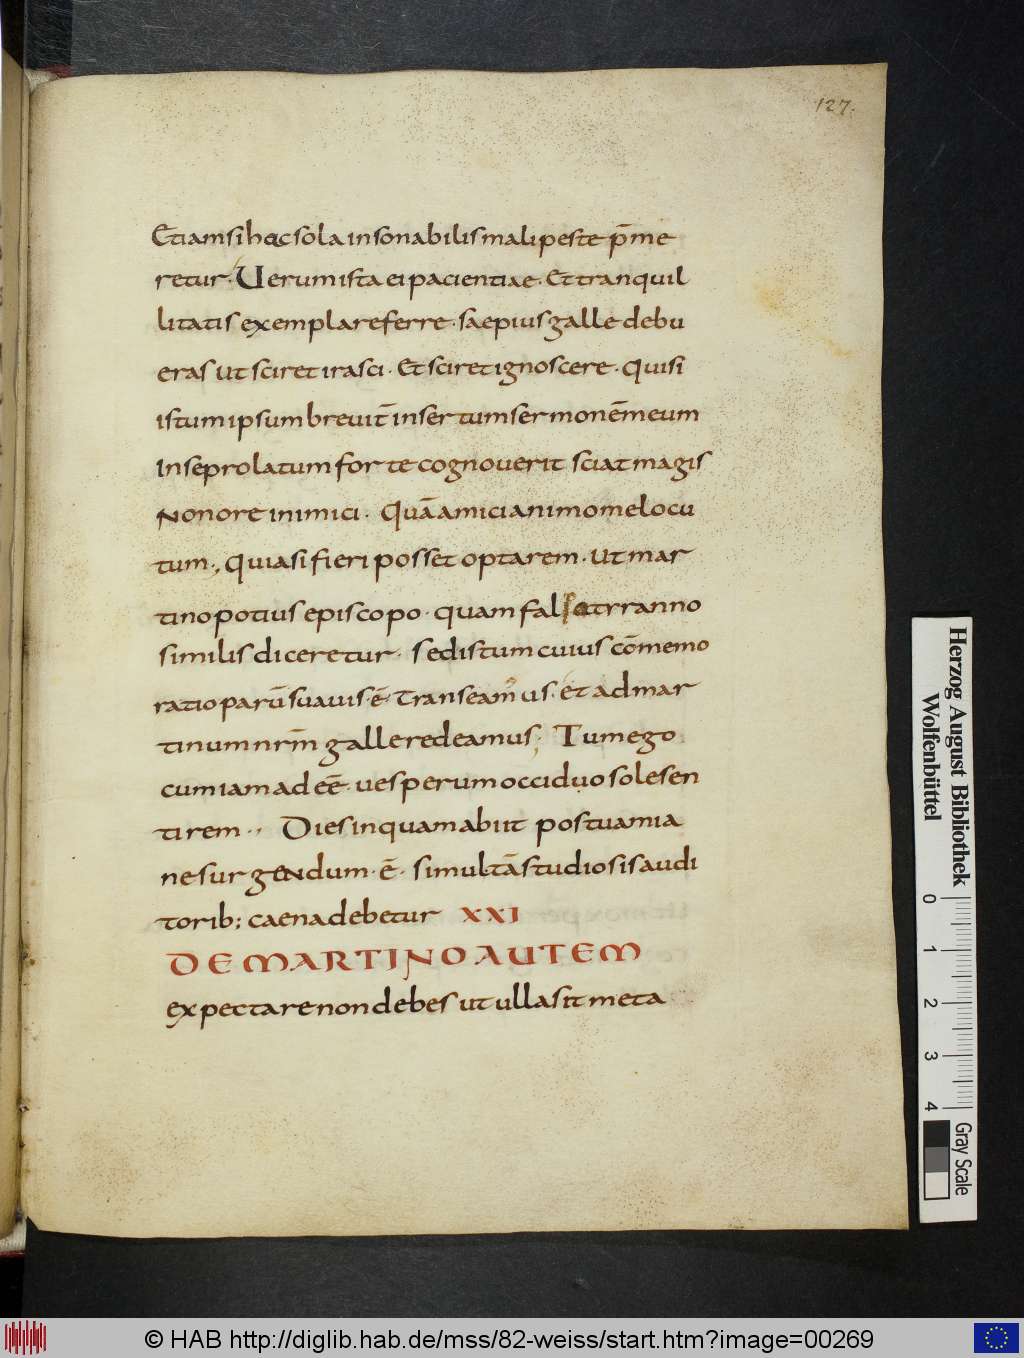 127.
Etiamsi hac sola insonabilis mali peste p̄me
retur. Verum ista ei pacientiae. Et tranquil
litatis exempla referre. saepius galle debu
eras ut sciret irasci. Et sciret ignoscere. Quisi
istum ipsum breuit̄ insertum sermonē meum
In se prolatum forte cognouerit sciat magis
Non ore inimici. Quā amici animo me locu
tum., Quia si fieri posset optarem. Ut mar
tino potius episcopo. quam falso tyranno
similis diceretur. sed istum cuius cōmemo
ratio parū suauis. ē. transeamus. et ad mar
tinum nr̄m galle redeamus; Tum ego
cum iam adeē. uesperum occiduo sole sen
tirem., Dies inquam abiit postuamia
ne surgendum. ē. simul tā studiosis audi
torib; caena debetur XXI
DE MARTINO AUTEM
expectare non debes ut ulla sit meta
Herzog August Bibliothek
Wolfenbüttel
0 1 2 3 4
Gray Scale
© HAB http://diglib.hab.de/mss/82-weiss/start.htm?image=00269